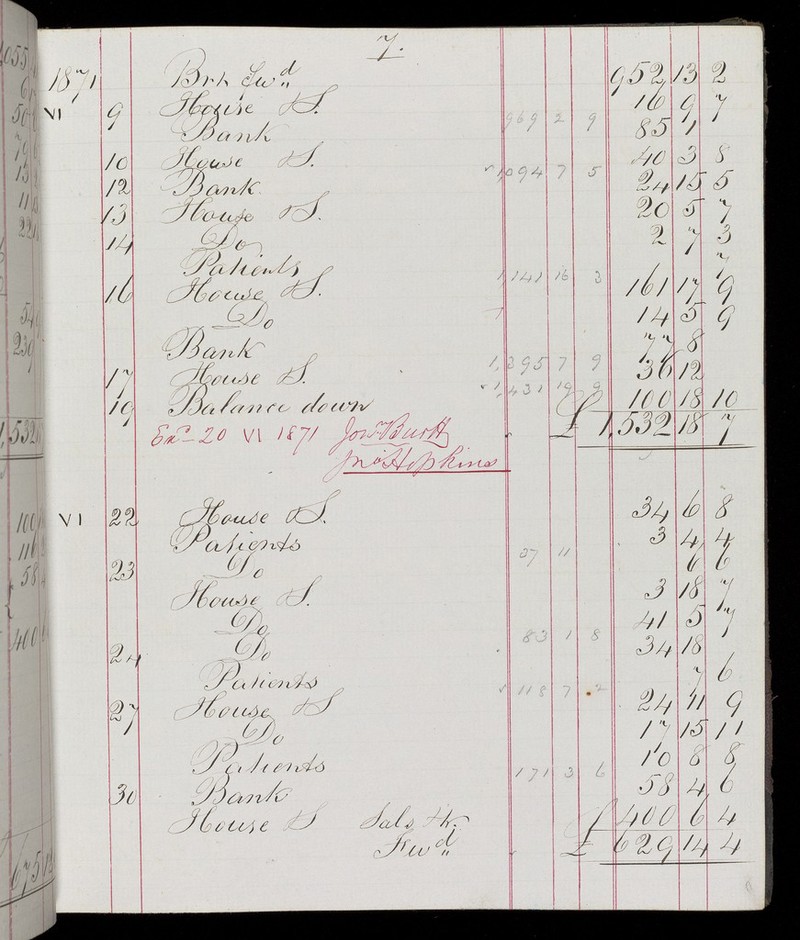 7.
1871 Brt Fwd 952 13 2
VI 9 House S. 16 9 7
Bank 969 2 9 85 1
10 House S. 40 3 8
12 Bank. 1,094 7 5 24 15 5
13 House S. 20 5 7
14 Do 2 7 3
Patients 7
16 House S. 1,141 16 3 161 17 9
Do 14 5 9
Bank 77 8
17 House S. 1,395 7 9 36 12
19 Balance down 1,431 19 9 100 18 10
Exd 20 VI 1871 Jos: Burtt £ 1,532 18 7
Jno Hopkins
VI 22 House S. 34 6 8
Patients 3 4 4
23 Do 37 11 6 6
House S. 3 18 7
Do 41 5 7
24 Do 83 1 8 34 18
Patients 7 6
27 House S 118 7 2 24 11 9
Do 17 15 11
Patients 10 8 8
30 Bank 171 3 6 58 4 6
House S Sals &c 400 6 4
Fwd £ 629 14 4